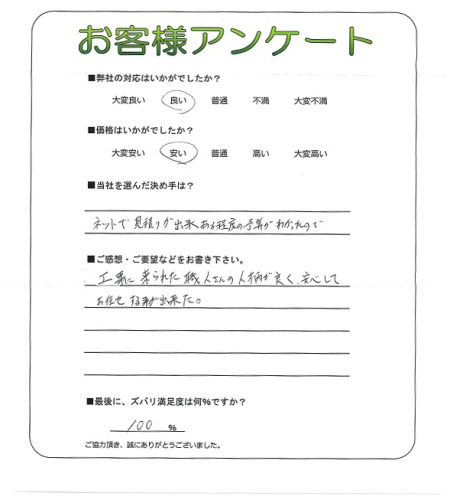 お客様アンケート
■弊社の対応はいかがでしたか？
大変良い 良い 普通 不満 大変不満
■価格はいかがでしたか？
大変安い 安い 普通 高い 大変高い
■当社を選んだ決め手は？
ネットで見積りが出来、ある程度の予算がわかったので
■ご感想・ご要望などをお書き下さい。
工事に来られた職人さんの人柄が良く、安心して
お任せする事が出来た。
■最後に、ズバリ満足度は何%ですか？
100 %
ご協力頂き、誠にありがとうございました。